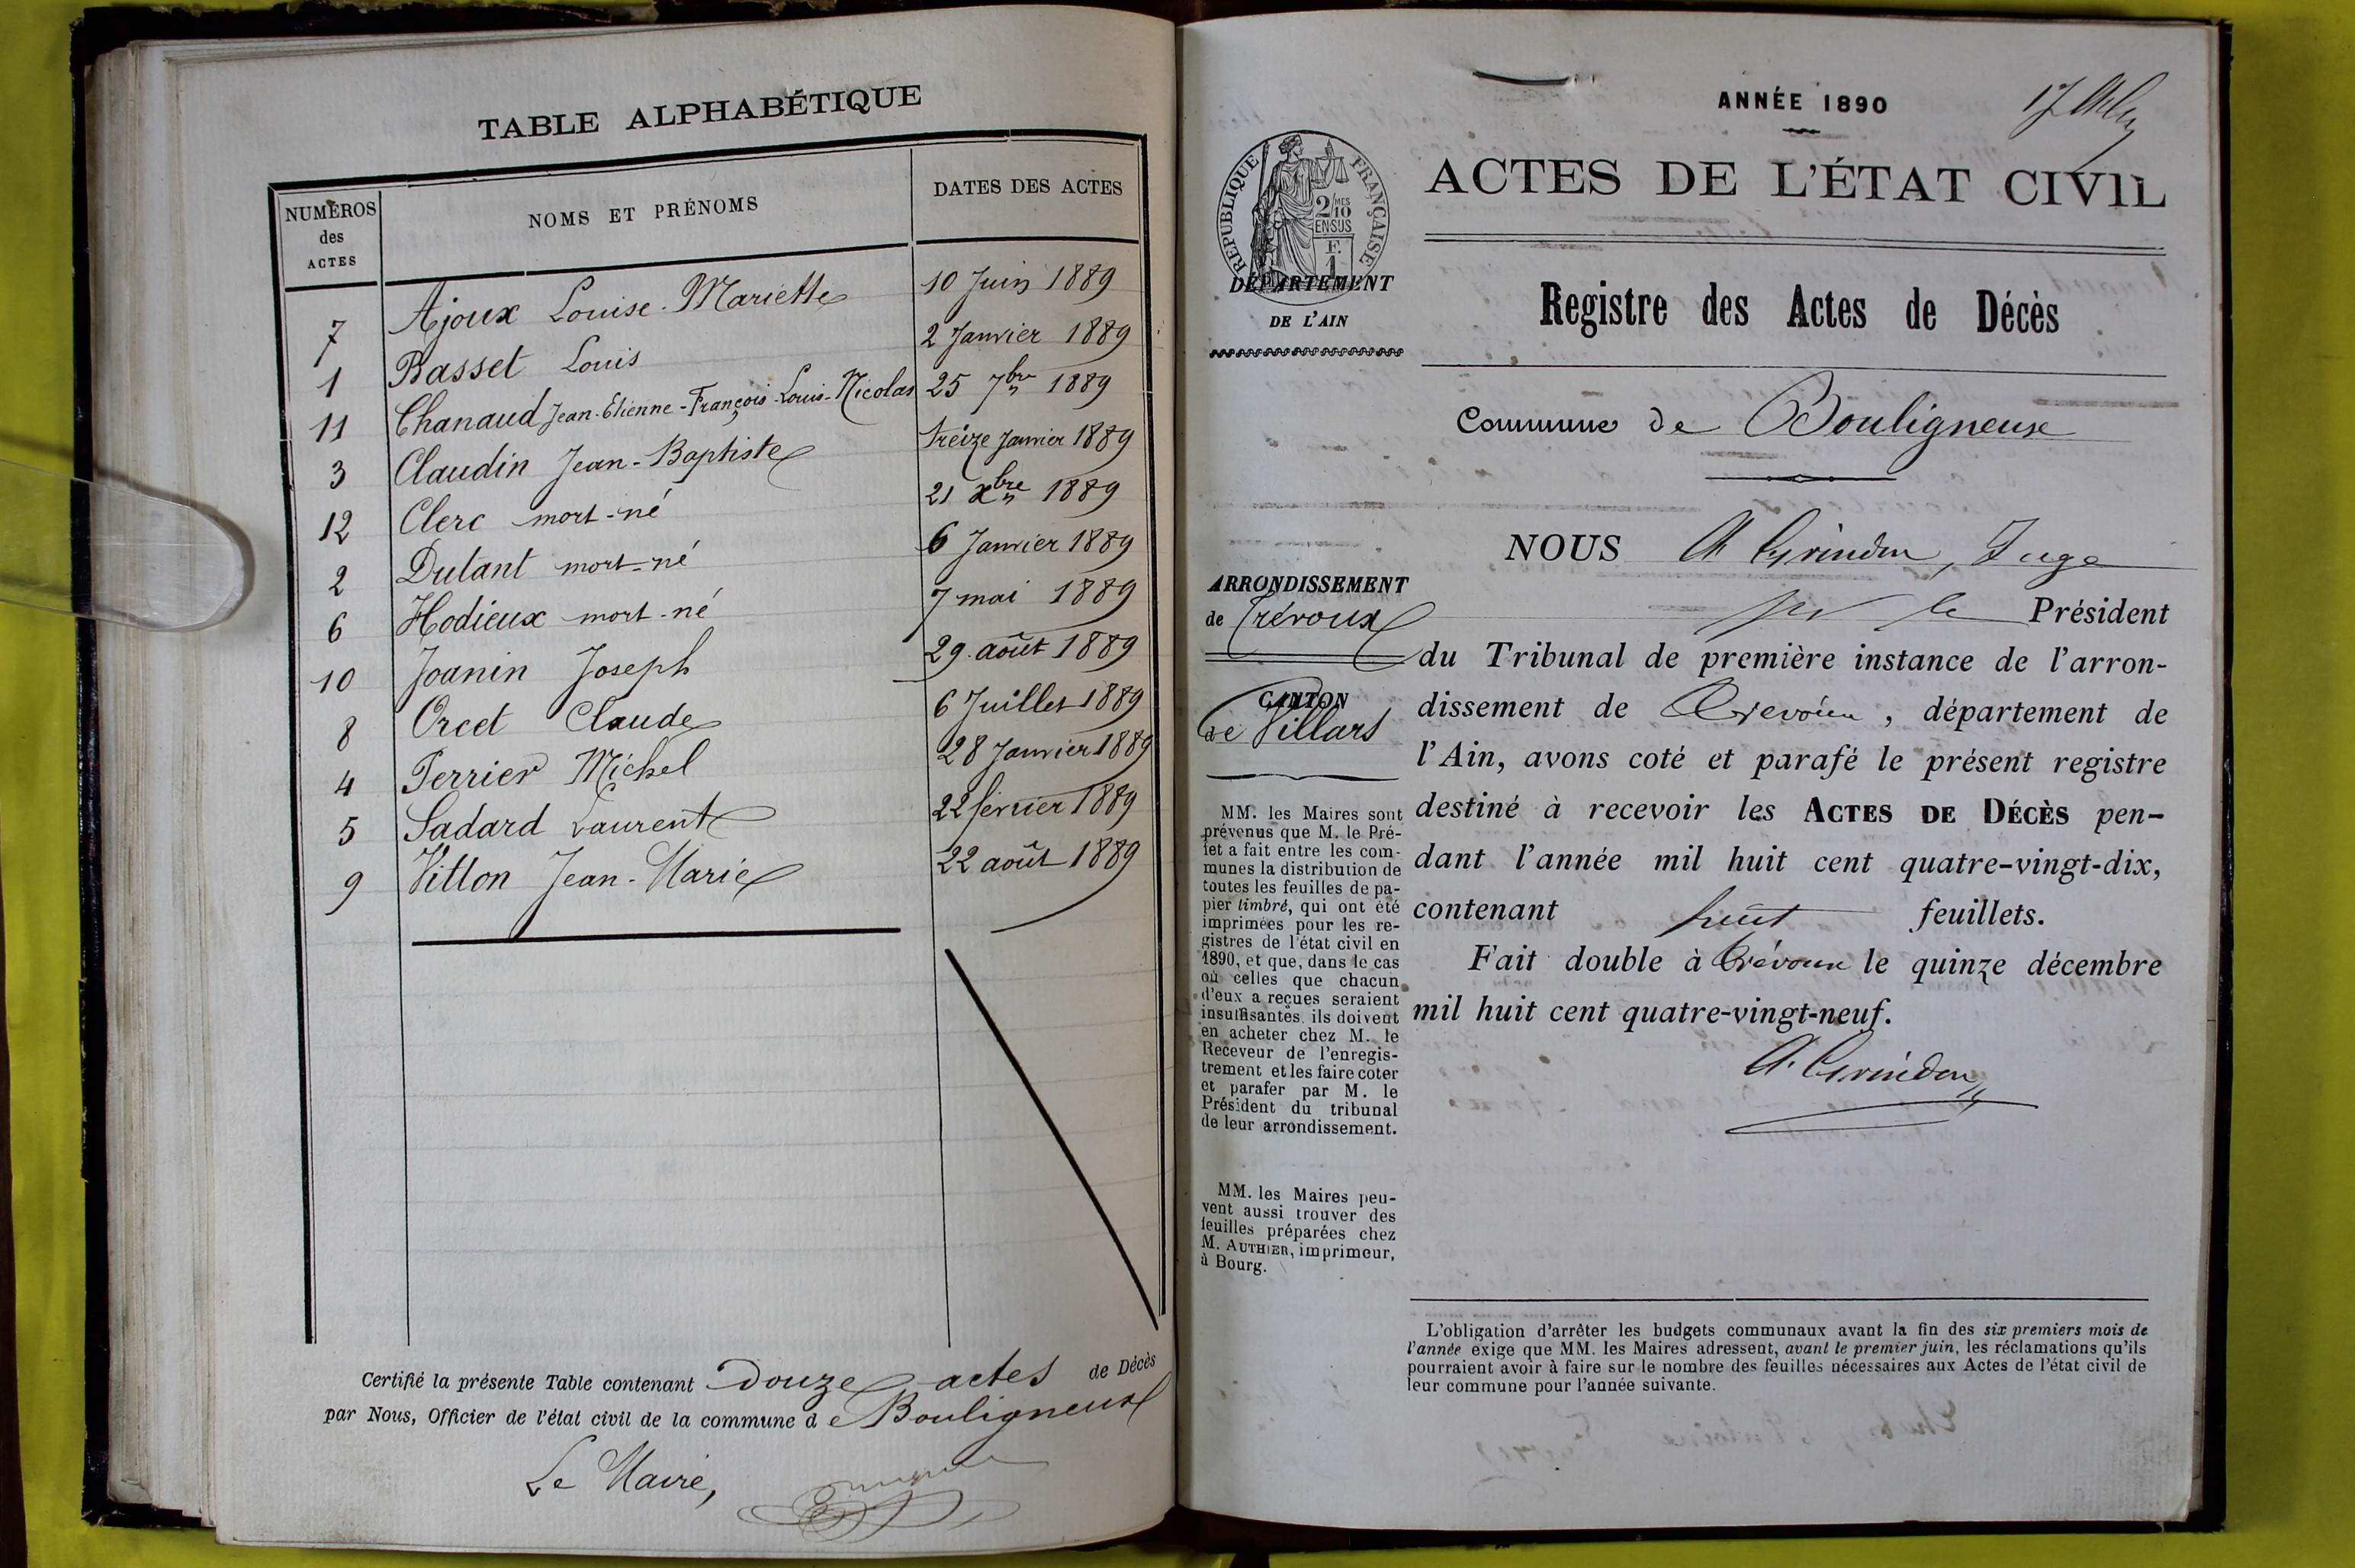 TABLE ALPHABÉTIQUE
NUMÉROS des ACTES NOMS ET PRÉNOMS DATES DES ACTES
7 Ajoux Louise-Mariette 10 Juin 1889
1 Basset Louis 2 Janvier 1889
11 Chanaud Jean-Etienne-François-Louis-Nicolas 25 7bre 1889
3 Claudin Jean-Baptiste treize Janvier 1889
12 Clerc mort-né 21 xbre 1889
2 Dutant mort-né 6 Janvier 1889
6 Hodieux mort-né 7 mai 1889
10 Joanin Joseph 29 août 1889
8 Orcet Claude 6 Juillet 1889
4 Perrier Michel 28 Janvier 1889
5 Sadard Laurent 22 février 1889
9 Vitton Jean-Marie 22 août 1889
Certifié la présente Table contenant Douze actes de Décès
par Nous, Officier de l'état civil de la commune de Bouligneux
Le Maire,
ANNÉE 1890
ACTES DE L'ÉTAT CIVIL
RÉPUBLIQUE FRANÇAISE
2/MES 10
EN SUS
F.
1
DÉPARTEMENT
DE L'AIN
Registre des Actes de Décès
Commune de Bouligneux
NOUS A Grindon, Juge
le Président
ARRONDISSEMENT
de Trévoux
du Tribunal de première instance de l'arron-
CANTON
de Villars
dissement de Trévoux, département de
l'Ain, avons coté et parafé le présent registre
destiné à recevoir les ACTES DE DÉCÈS pen-
dant l'année mil huit cent quatre-vingt-dix,
contenant huit feuillets.
Fait double à Trévoux le quinze décembre
mil huit cent quatre-vingt-neuf.
A. Grindon
MM. les Maires sont
prévenus que M. le Pré-
fet a fait entre les com-
munes la distribution de
toutes les feuilles de pa-
pier timbré, qui ont été
imprimées pour les re-
gistres de l'état civil en
1890, et que, dans le cas
où celles que chacun
d'eux a reçues seraient
insuffisantes, ils doivent
en acheter chez M. le
Receveur de l'enregis-
trement et les faire coter
et parafer par M. le
Président du tribunal
de leur arrondissement.
MM. les Maires peu-
vent aussi trouver des
feuilles préparées chez
M. AUTHIER, imprimeur,
à Bourg.
L'obligation d'arrêter les budgets communaux avant la fin des six premiers mois de
l'année exige que MM. les Maires adressent, avant le premier juin, les réclamations qu'ils
pourraient avoir à faire sur le nombre des feuilles nécessaires aux Actes de l'état civil de
leur commune pour l'année suivante.